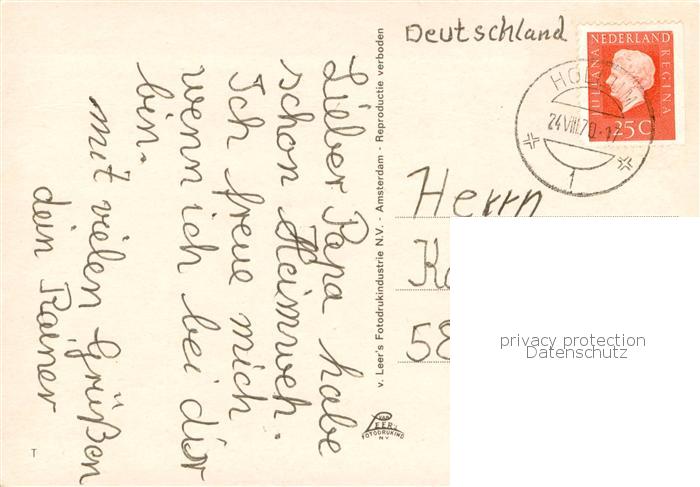 Lieber Papa habe
schon Heimweh.
Ich freue mich
wenn ich bei dir
bin.
mit vielen Grüßen
dein Rainer
v. Leer's Fotodrukindustrie N.V. - Amsterdam - Reproductie verboden
Deutschland
NEDERLAND
JULIANA
REGINA
25C
24.VIII.70
1
Herrn
58
privacy protection
Datenschutz
VAN
LEER'S
FOTODRUKIND
N.V.
T